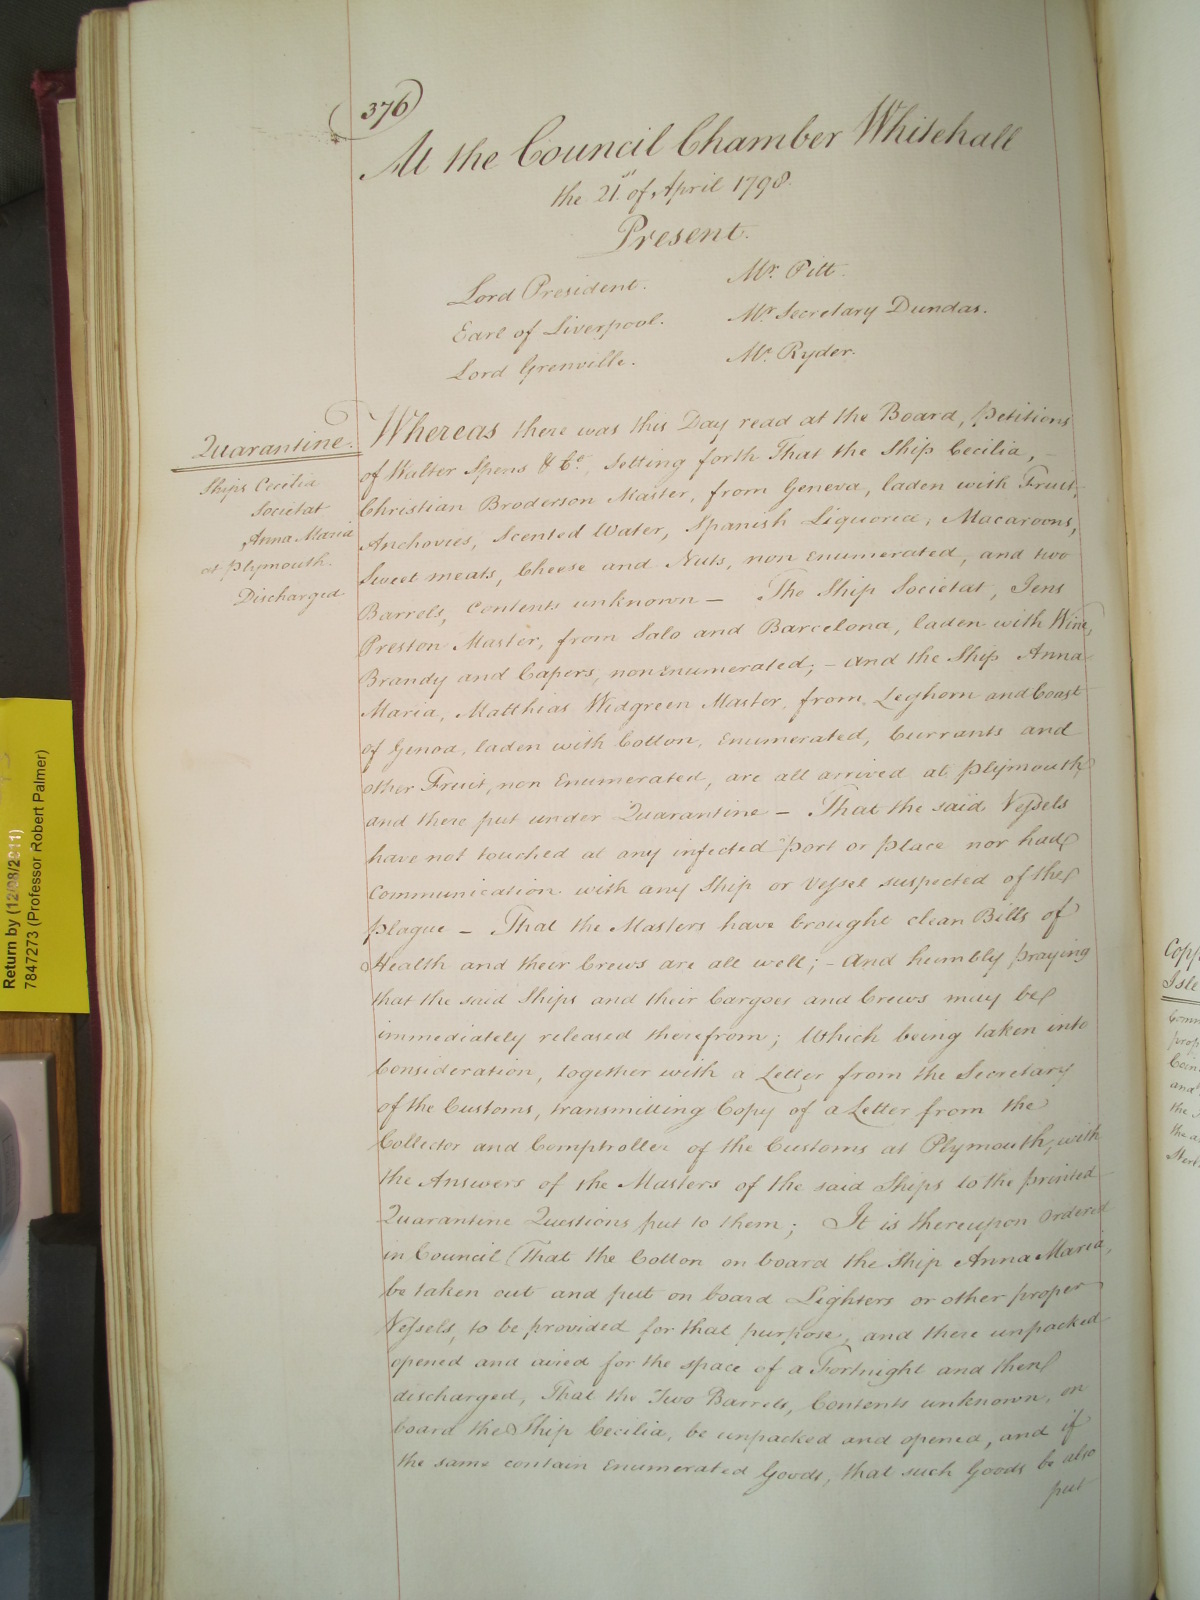 376
At the Council Chamber Whitehall
the 21st of April 1798.
Present.
Lord President.
Mr. Pitt.
Earl of Liverpool.
Mr. Secretary Dundas.
Lord Grenville.
Mr. Ryder.
Quarantine.
Ships Cecilia
Societat
Anna Maria
at Plymouth.
Discharged
Whereas there was this Day read at the Board, Petitions
of Walter Spens & Co. Setting forth That the Ship Cecilia, -
Christian Broderson Master, from Geneva, laden with Fruit,
Anchovies, Scented Water, Spanish Liquorice, Macaroons,
Sweetmeats, Cheese and Nuts, non Enumerated, and two
Barrels, contents unknown — The Ship Societat, Jens
Preston Master, from Salo and Barcelona, laden with Wine,
Brandy and Capers, non Enumerated; - And the Ship Anna
Maria, Matthias Widgreen Master, from Leghorn and Coast
of Genoa, laden with Cotton, Enumerated, Currants and
other Fruit, non Enumerated, are all arrived at Plymouth
and there put under Quarantine — That the said Vessels
have not touched at any infected Port or place nor had
Communication with any Ship or Vessel suspected of the
plague — That the Masters have brought clean Bills of
Health and their Crews are all well; - And humbly praying
that the said Ships and their Cargoes and Crews may be
immediately released therefrom; Which being taken into
Consideration, together with a Letter from the Secretary
of the Customs, transmitting Copy of a Letter from the
Collector and Comptroller of the Customs at Plymouth, with
the Answers of the Masters of the said Ships to the printed
Quarantine Questions put to them; It is thereupon Ordered
in Council (That the Cotton on board the Ship Anna Maria,
be taken out and put on board Lighters or other proper
Vessels, to be provided for that purpose, and there unpacked
opened and aired for the space of a Fortnight and then
discharged, That the Two Barrels, Contents unknown, on
board the Ship Cecilia, be unpacked and opened, and if
the same contain Enumerated Goods, that such Goods be also
put
Return by (12/08/2011)
7847273 (Professor Robert Palmer)
Isle
and
the